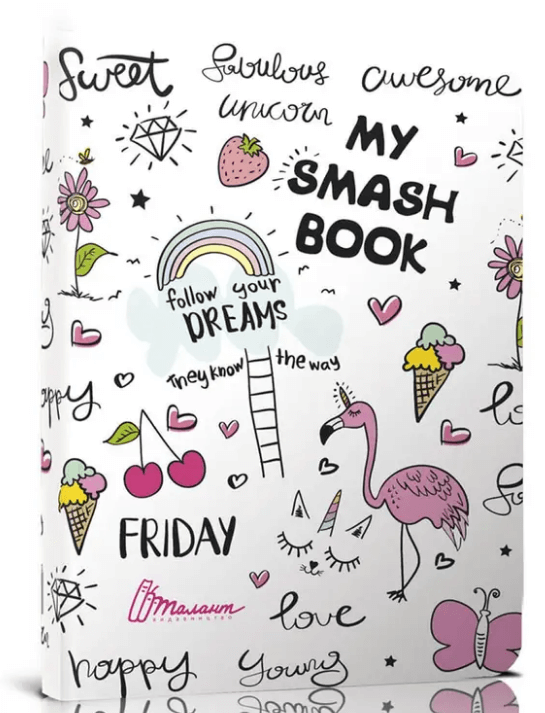 Sweet fabulous awesome
unicorn
MY
SMASH
BOOK
follow your
DREAMS
They know the way
happy
FRIDAY
Талант
ВИДАВНИЦТВО
love
happy young